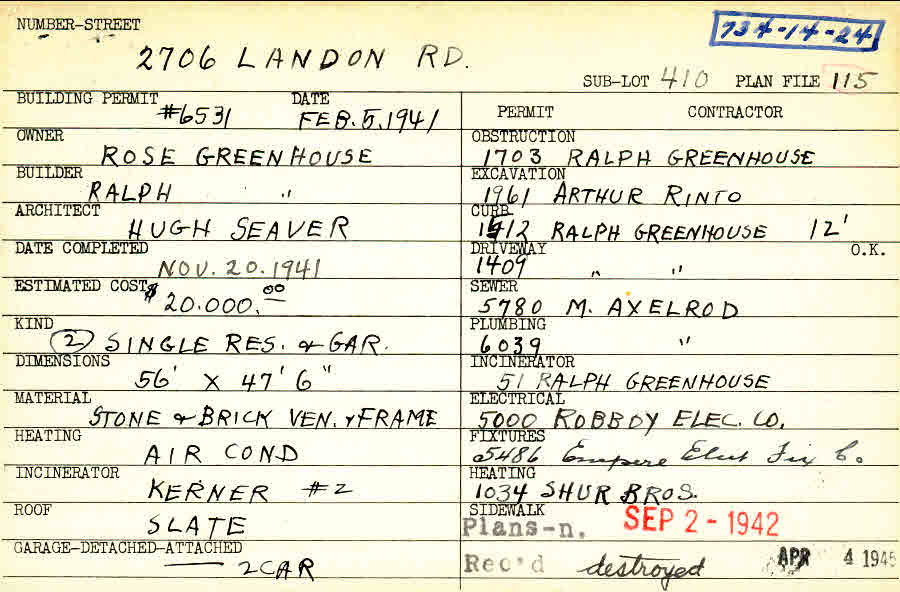 NUMBER-STREET
734-14-24
2706 LANDON RD.
SUB-LOT 410 PLAN FILE 115
BUILDING PERMIT #6531 DATE FEB. 5, 1941
PERMIT CONTRACTOR
OWNER ROSE GREENHOUSE
OBSTRUCTION 1703 RALPH GREENHOUSE
BUILDER RALPH "
EXCAVATION 1961 ARTHUR RINTO
ARCHITECT HUGH SEAVER
CURB 1412 RALPH GREENHOUSE 12'
DATE COMPLETED NOV. 20. 1941
DRIVEWAY 1409 " " O.K.
ESTIMATED COST $ 20.000.00
SEWER 5780 M. AXELROD
KIND (2) SINGLE RES. & GAR.
PLUMBING 6039 "
DIMENSIONS 56' X 47' 6"
INCINERATOR 51 RALPH GREENHOUSE
MATERIAL STONE & BRICK VEN. & FRAME
ELECTRICAL 5000 ROBBOY ELEC. CO.
HEATING AIR COND
FIXTURES 5486 Empire Elect Fix Co.
INCINERATOR KERNER #2
HEATING 1034 SHUR BROS.
ROOF SLATE
SIDEWALK SEP 2 - 1942
Plans-n.
GARAGE-DETACHED-ATTACHED 2 CAR
Rec'd destroyed APR 4 1945